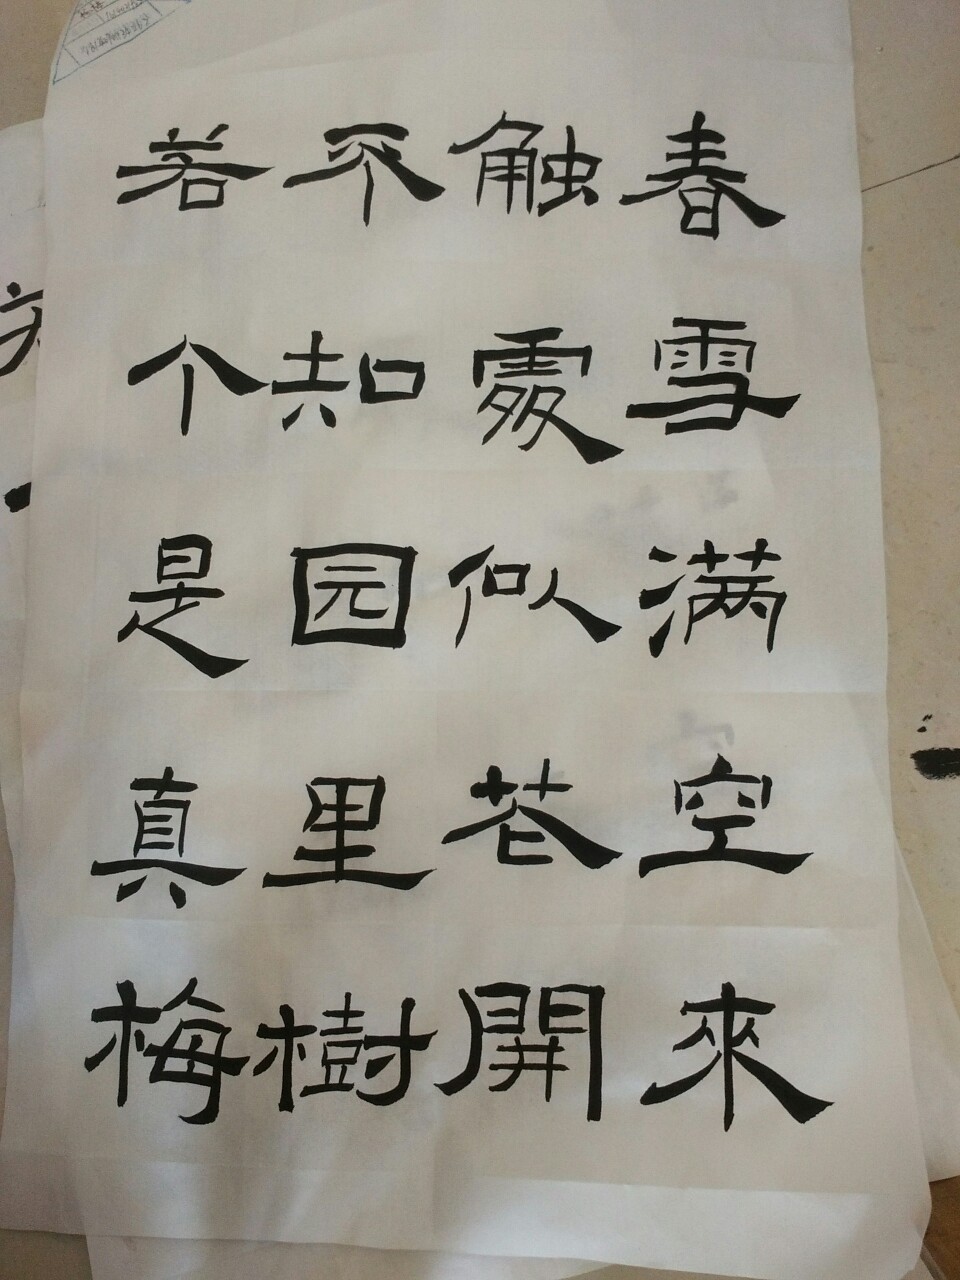 春雪满空來
触處似花開
不知园里樹
若个是真梅